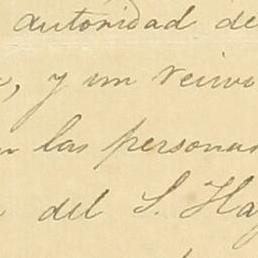 autoridad de
, y un reino
las personas
del S. Hay